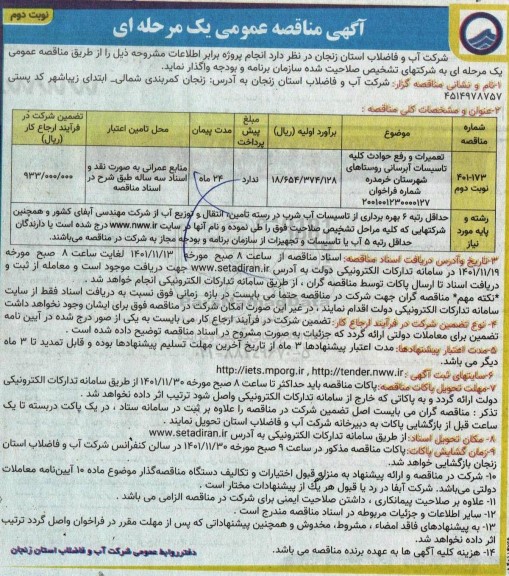 نوبت دوم
آگهی مناقصه عمومی یک مرحله ای
شرکت آب و فاضلاب استان زنجان در نظر دارد انجام پروژه برابر اطلاعات مشروحه ذیل را از طریق مناقصه عمومی
یک مرحله ای به شرکتهای تشخیص صلاحیت شده سازمان برنامه و بودجه واگذار نماید.
۱-نام و نشانی مناقصه گزار: شرکت آب و فاضلاب استان زنجان به آدرس: زنجان کمربندی شمالی_ ابتدای زیباشهر کد پستی
۴۵۱۴۹۷۸۷۵۷
۲-عنوان و مشخصات کلی مناقصه :
شماره مناقصه | موضوع | برآورد اولیه (ریال) | مبلغ پیش پرداخت | مدت پیمان | محل تامین اعتبار | تضمین شرکت در فرآیند ارجاع کار (ریال)
۴۰۱-۱۷۳ نوبت دوم | تعمیرات و رفع حوادث کلیه تاسیسات آبرسانی روستاهای شهرستان خرمدره شماره فراخوان ۲۰۰۱۰۰۱۲۳۰۰۰۰۱۲۷ | ۱۸/۶۵۴/۳۷۴/۱۲۸ | ندارد | ۲۴ ماه | منابع عمرانی به صورت نقد و اسناد سه ساله طبق شرح در اسناد مناقصه | ۹۳۳/۰۰۰/۰۰۰
رشته و پایه مورد نیاز | حداقل رتبه ۶ بهره برداری از تاسیسات آب شرب در رسته تامین، انتقال و توزیع آب از شرکت مهندسی آبفای کشور و همچنین
شرکتهایی که کلیه مراحل تشخیص صلاحیت فوق را طی نموده و نام آنها در سایت www.nww.ir درج شده است یا دارندگان
حداقل رتبه ۵ آب یا تاسیسات و تجهیزات از سازمان برنامه و بودجه مجاز به شرکت در مناقصه می‌باشند.
۳-تاریخ وآدرس دریافت اسناد مناقصه: اسناد مناقصه از ساعت ۸ صبح مورخه ۱۴۰۱/۱۱/۱۳ لغایت ساعت ۸ صبح مورخه
۱۴۰۱/۱۱/۱۹ در سامانه تدارکات الکترونیکی دولت به آدرس www.setadiran.ir جهت دریافت موجود است و معامله از ثبت و
دریافت اسناد تا ارسال پاکات توسط مناقصه گران ، از طریق سامانه تدارکات الکترونیکی انجام خواهد شد .
*نکته مهم* مناقصه گران جهت شرکت در مناقصه حتما می بایست در بازه زمانی فوق نسبت به دریافت اسناد فقط از سایت
سامانه تدارکات الکترونیکی دولت اقدام نمایند ، در غیر این صورت امکان شرکت در مناقصه فوق برای ایشان وجود نخواهد داشت
۴- نوع تضمین شرکت در فرآیند ارجاع کار: تضمین شرکت در فرآیند ارجاع کار می بایست به یکی از صور درج شده در آیین نامه
تضمین برای معاملات دولتی ارائه گردد که جزئیات به صورت مشروح در اسناد مناقصه توضیح داده شده است .
۵-مدت اعتبار پیشنهادها: مدت اعتبار پیشنهادها ۳ ماه از تاریخ آخرین مهلت تسلیم پیشنهادها بوده و قابل تمدید تا ۳ ماه
دیگر می باشد.
۶-سایتهای ثبت آگهی : http://iets.mporg.ir , http://tender.nww.ir
۷-مهلت تحویل پاکات مناقصه: پاکات مناقصه باید حداکثر تا ساعت ۸ صبح مورخه ۱۴۰۱/۱۱/۳۰ از طریق سامانه تدارکات الکترونیکی
دولت ارائه گردد و به پاکاتی که خارج از سامانه تدارکات الکترونیکی واصل شود ترتیب اثر داده نخواهد شد .
تذکر : مناقصه گران می بایست اصل تضمین شرکت در مناقصه را علاوه بر ثبت در سامانه ستاد ، در یک پاکت دربسته تا یک
ساعت قبل از بازگشایی پاکات به دبیرخانه شرکت آب و فاضلاب استان تحویل نمایند .
۸- مکان تحویل اسناد: از طریق سامانه تدارکات الکترونیکی به آدرس www.setadiran.ir
۹-زمان گشایش پاکات: پاکات مناقصه مذکور در ساعت ۹ صبح مورخه ۱۴۰۱/۱۱/۳۰ در سالن کنفرانس شرکت آب و فاضلاب استان
زنجان بازگشایی خواهد شد.
۱۰- شرکت در مناقصه و ارائه پیشنهاد به منزله قبول اختیارات و تکالیف دستگاه مناقصه‌گذار موضوع ماده ۱۰ آیین‌نامه معاملات
دولتی می‌باشد. شرکت آبفا در رد یا قبول هر یک از پیشنهادات مختار است .
۱۱- علاوه بر صلاحیت پیمانکاری ، داشتن صلاحیت ایمنی برای شرکت در مناقصه الزامی می باشد .
۱۲- سایر اطلاعات و جزئیات مربوطه در اسناد مناقصه مندرج است .
۱۳- به پیشنهادهای فاقد امضاء ، مشروط، مخدوش و همچنین پیشنهاداتی که پس از مهلت مقرر در فراخوان واصل گردد ترتیب
اثر داده نخواهد شد.
۱۴- هزینه کلیه آگهی ها به عهده برنده مناقصه می باشد.
دفتر روابط عمومی شرکت آب و فاضلاب استان زنجان